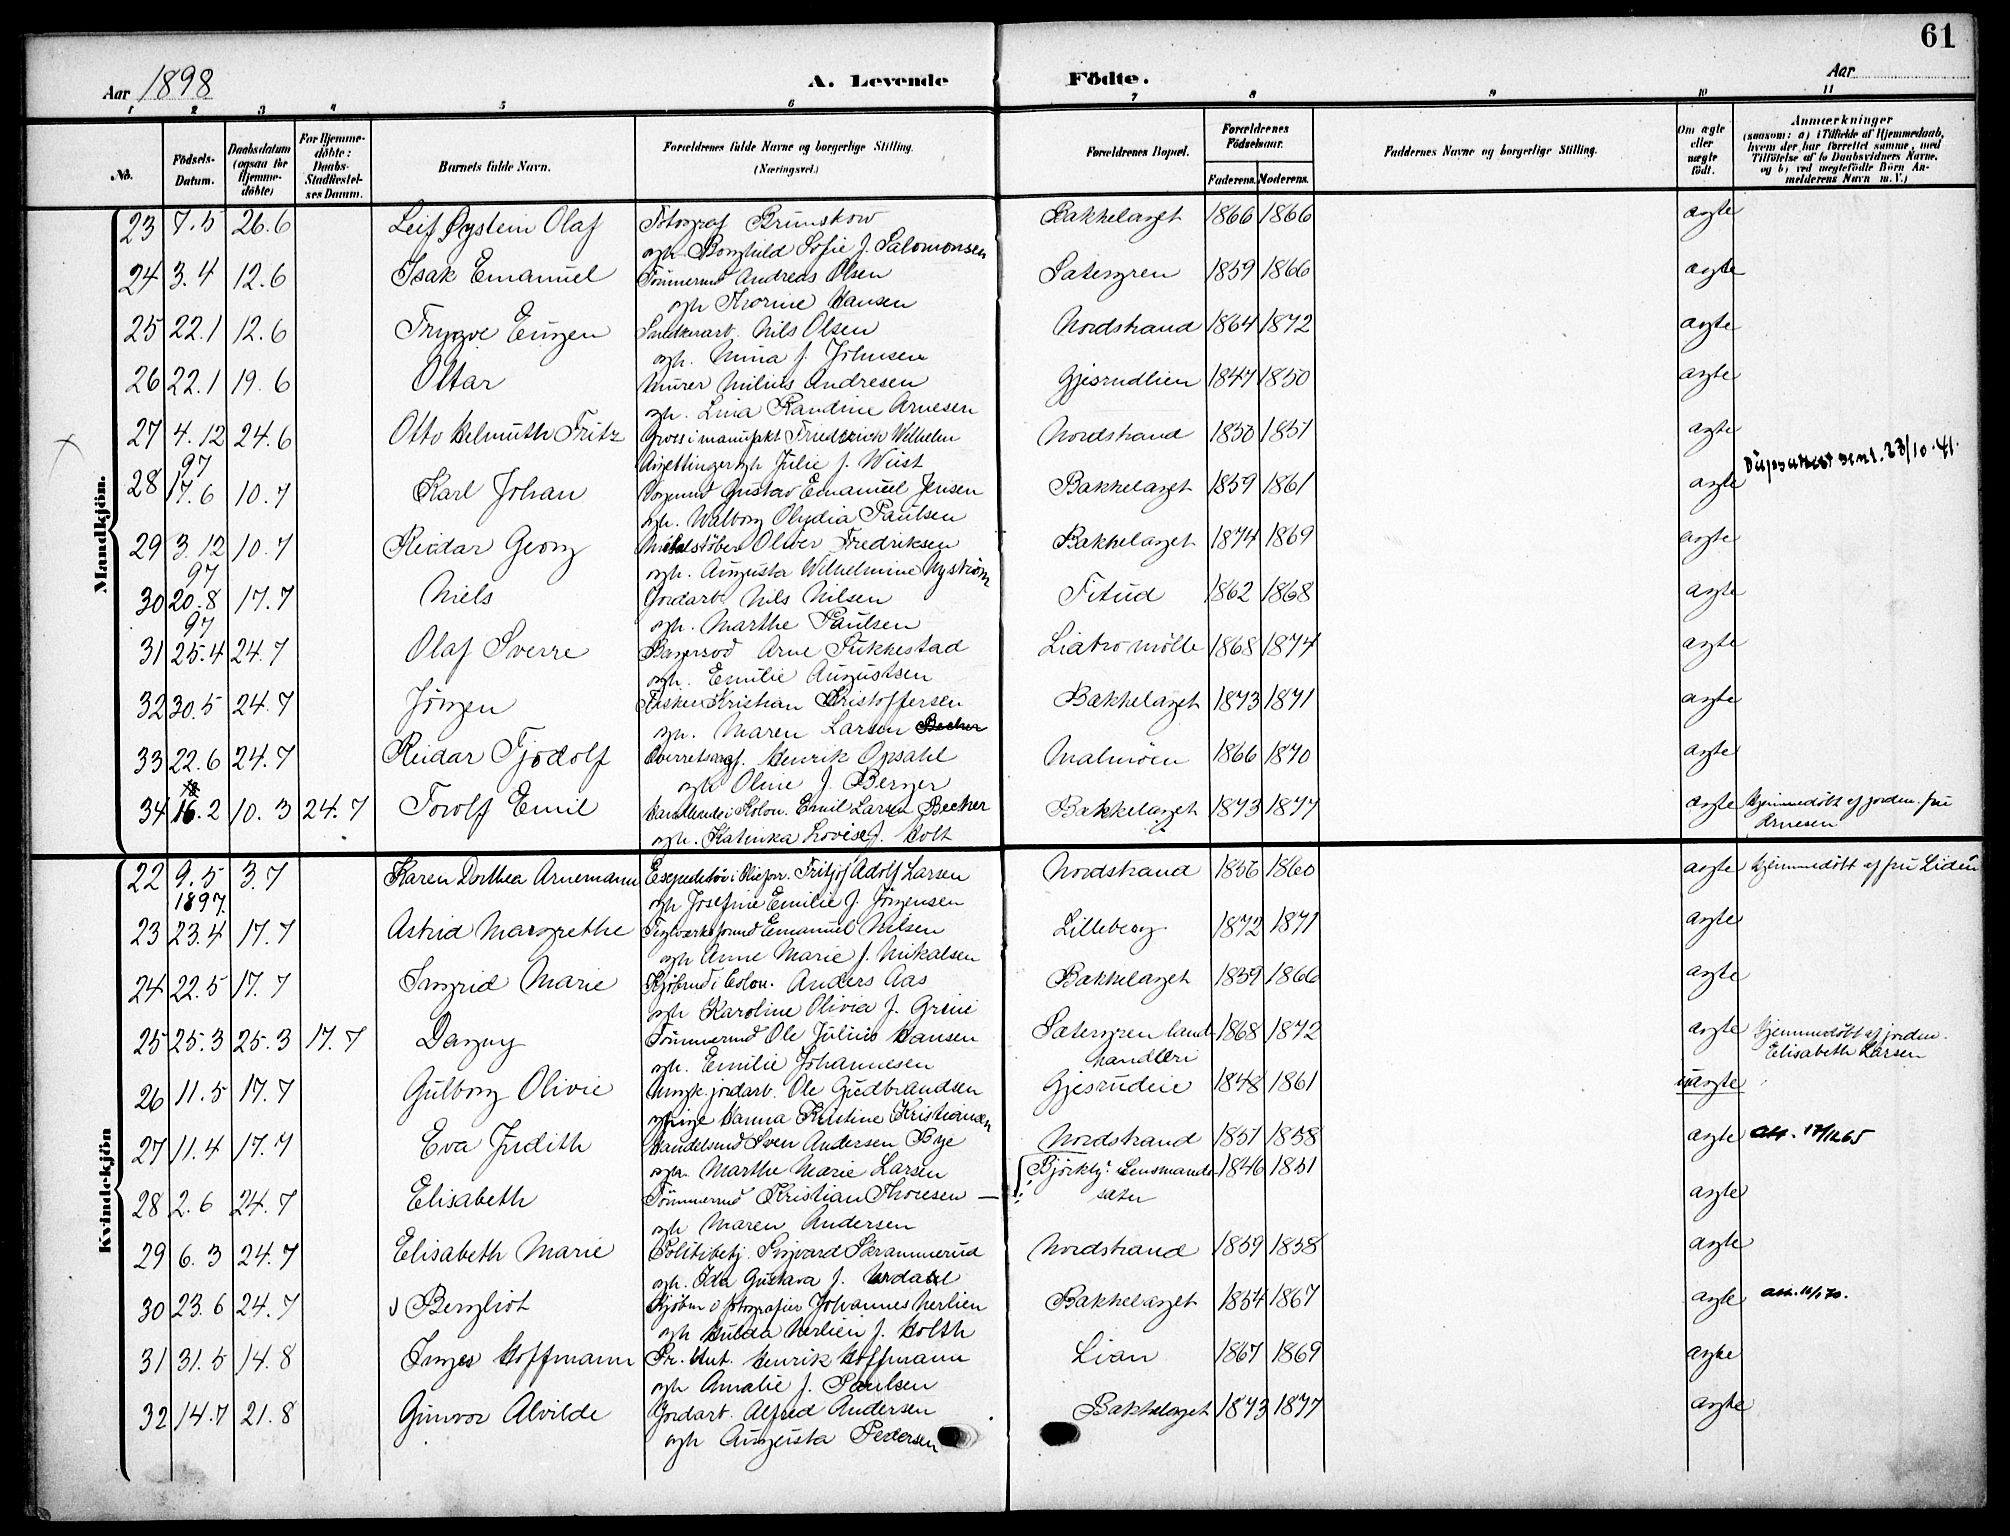 61
Aar 1898
A. Levende Födte.
Aar
1 2 3 4 5 6 7 8 9 10 11
No.
Födsels-Datum.
Daabsdatum (ogsaa for Hjemmedöbte)
For Hjemmedöbte: Daabs-Stadfestelses Datum.
Barnets fulde Navn.
Forældrenes fulde Navne og borgerlige Stilling.
(Næringsvei.)
Forældrenes Bopæl.
Forældrenes Födselsaar.
Faderens. Moderens.
Faddernes Navne og borgerlige Stilling.
Om ægte eller uægte födt.
Anmærkninger
(saasom: a) i Tilfælde af Hjemmedaab, hvem der har forrettet samme, med Tilföielse af to Daabsvidners Navne, og b) ved uægtefödte Börn Anmelderens Navn m. V.)
Mandkjön.
23 7.5 26.6 Leif Øystein Olaf Fotograf Brunskow Bakkelaget 1866 1866 ægte
og h. Borghild Sofie f. Salomonsen
24 3.4 12.6 Isak Emanuel Tømmermd Andreas Olsen Sætergren 1859 1866 ægte
og h Thorine Hansen
25 22.1 12.6 Trygve Eugen Snedkerarb. Nils Olsen Nordstrand 1864 1872 ægte
og h. Mina f. Johnsen
26 22.1 19.6 Ottar Murer Milius Andresen Gjesrudlien 1847 1850 ægte
og h. Lina Randine Arnesen
27 4.12 97 24.6 Otto Helmuth Fritz Gross i manufakt Friedrich Wilhelm Nordstrand 1850 1851 ægte
og h Julie f. Wüst
28 17.6 10.7 Karl Johan Gustav Emanuel Jensen Bakkelaget 1859 1861 ægte
og h. Walborg Olydia Paulsen
29 3.12 97 10.7 Reidar Georg Metalstøber Oliver Fredriksen Bakkelaget 1874 1869 ægte
og h. Augusta Wilhelmine Nystrøm
30 20.8 97 17.7 Niels Jordarb. Nils Nilsen 1862 1868 ægte
og h. Marthe Paulsen
31 25.4 24.7 Olaf Sverre Arne Fukkestad Liabro mølle 1868 1874 ægte
og h. Emilie Augustsen
32 30.5 24.7 Jörgen Fisker Kristian Kristoffersen Bækkelaget 1873 1871 ægte
og h. Maren Larsen Becker
33 22.6 24.7 Reidar Tjodolf Overretssagf. Henrik Opsahl Malmøen 1866 1870 ægte
og h Oline f. Berger
34 16.2 10.3 24.7 Torolf Emil Handlende i Kolon. Emil Larsen Becker Bakkelaget 1873 1877 ægte Hjemmedøbt af jordem. fru Arnesen
og h. Katinka Lovise f. Holt
Kvindekjön
22 9.5 1897 3.7 Karen Dorthea Arnemann Expeditør i Oliefor. Fritjof Adolf Larsen Nordstrand 1856 1860 ægte Hjemmedøbt af fru Liden
og h Josefine Emilie f. Jörgensen
23 23.4 17.7 Astrid Margrethe Teglværksformd Emanuel Nilsen Lilleberg 1872 1871 ægte
og h Anne Marie f. Mikalsen
24 22.5 17.7 Ingrid Marie Kjöbmd i Colon. Anders Aas Bakkelaget 1859 1866 ægte
og h Karoline Olivia f. Greni
25 25.3 25.3 17.7 Dagny Tømmermd Ole Julius Hansen Sætergren landhandleri 1868 1872 ægte Hjemmedøbt af jordem. Elisabeth Larsen
og h. Emilie Johannesen
26 11.5 17.7 Gulborg Olivie Ungk. jordarb. Ole Gudbrandsen Gjesrudeie 1848 1861 uægte
og pige Hanna Kristine Kristiansen
27 11.4 17.7 Eva Judith Handelsmd Sven Andersen Bye Nordstrand 1851 1858 ægte att. 17/12 65
og h. Marthe Marie Larsen
28 2.6 24.7 Elisabeth Tømmermd Kristian Thoresen — Björklÿ Lensmandsæter 1846 1851 ægte
og h Maren Andersen
29 6.3 24.7 Elisabeth Marie Politibetj. Sigvard Skrammerud Nordstrand 1859 1858 ægte
og h. Ida Gustava f. Urdahl
30 23.6 24.7 Bergliot Kjøbm o fotografier Johannes Nerlien Bakkelaget 1854 1867 ægte
og h Hulda Nerlien f. Holth
31 31.5 14.8 Inger Hoffmann Pr. løit. Henrik Hoffmann Lian 1867 1869 ægte
og h Amalie f. Paulsen
32 14.7 21.8 Gunvor Alvilde Jordarb. Alfred Andersen Bakkelaget 1873 1877 ægte
og h Augusta Pedersen